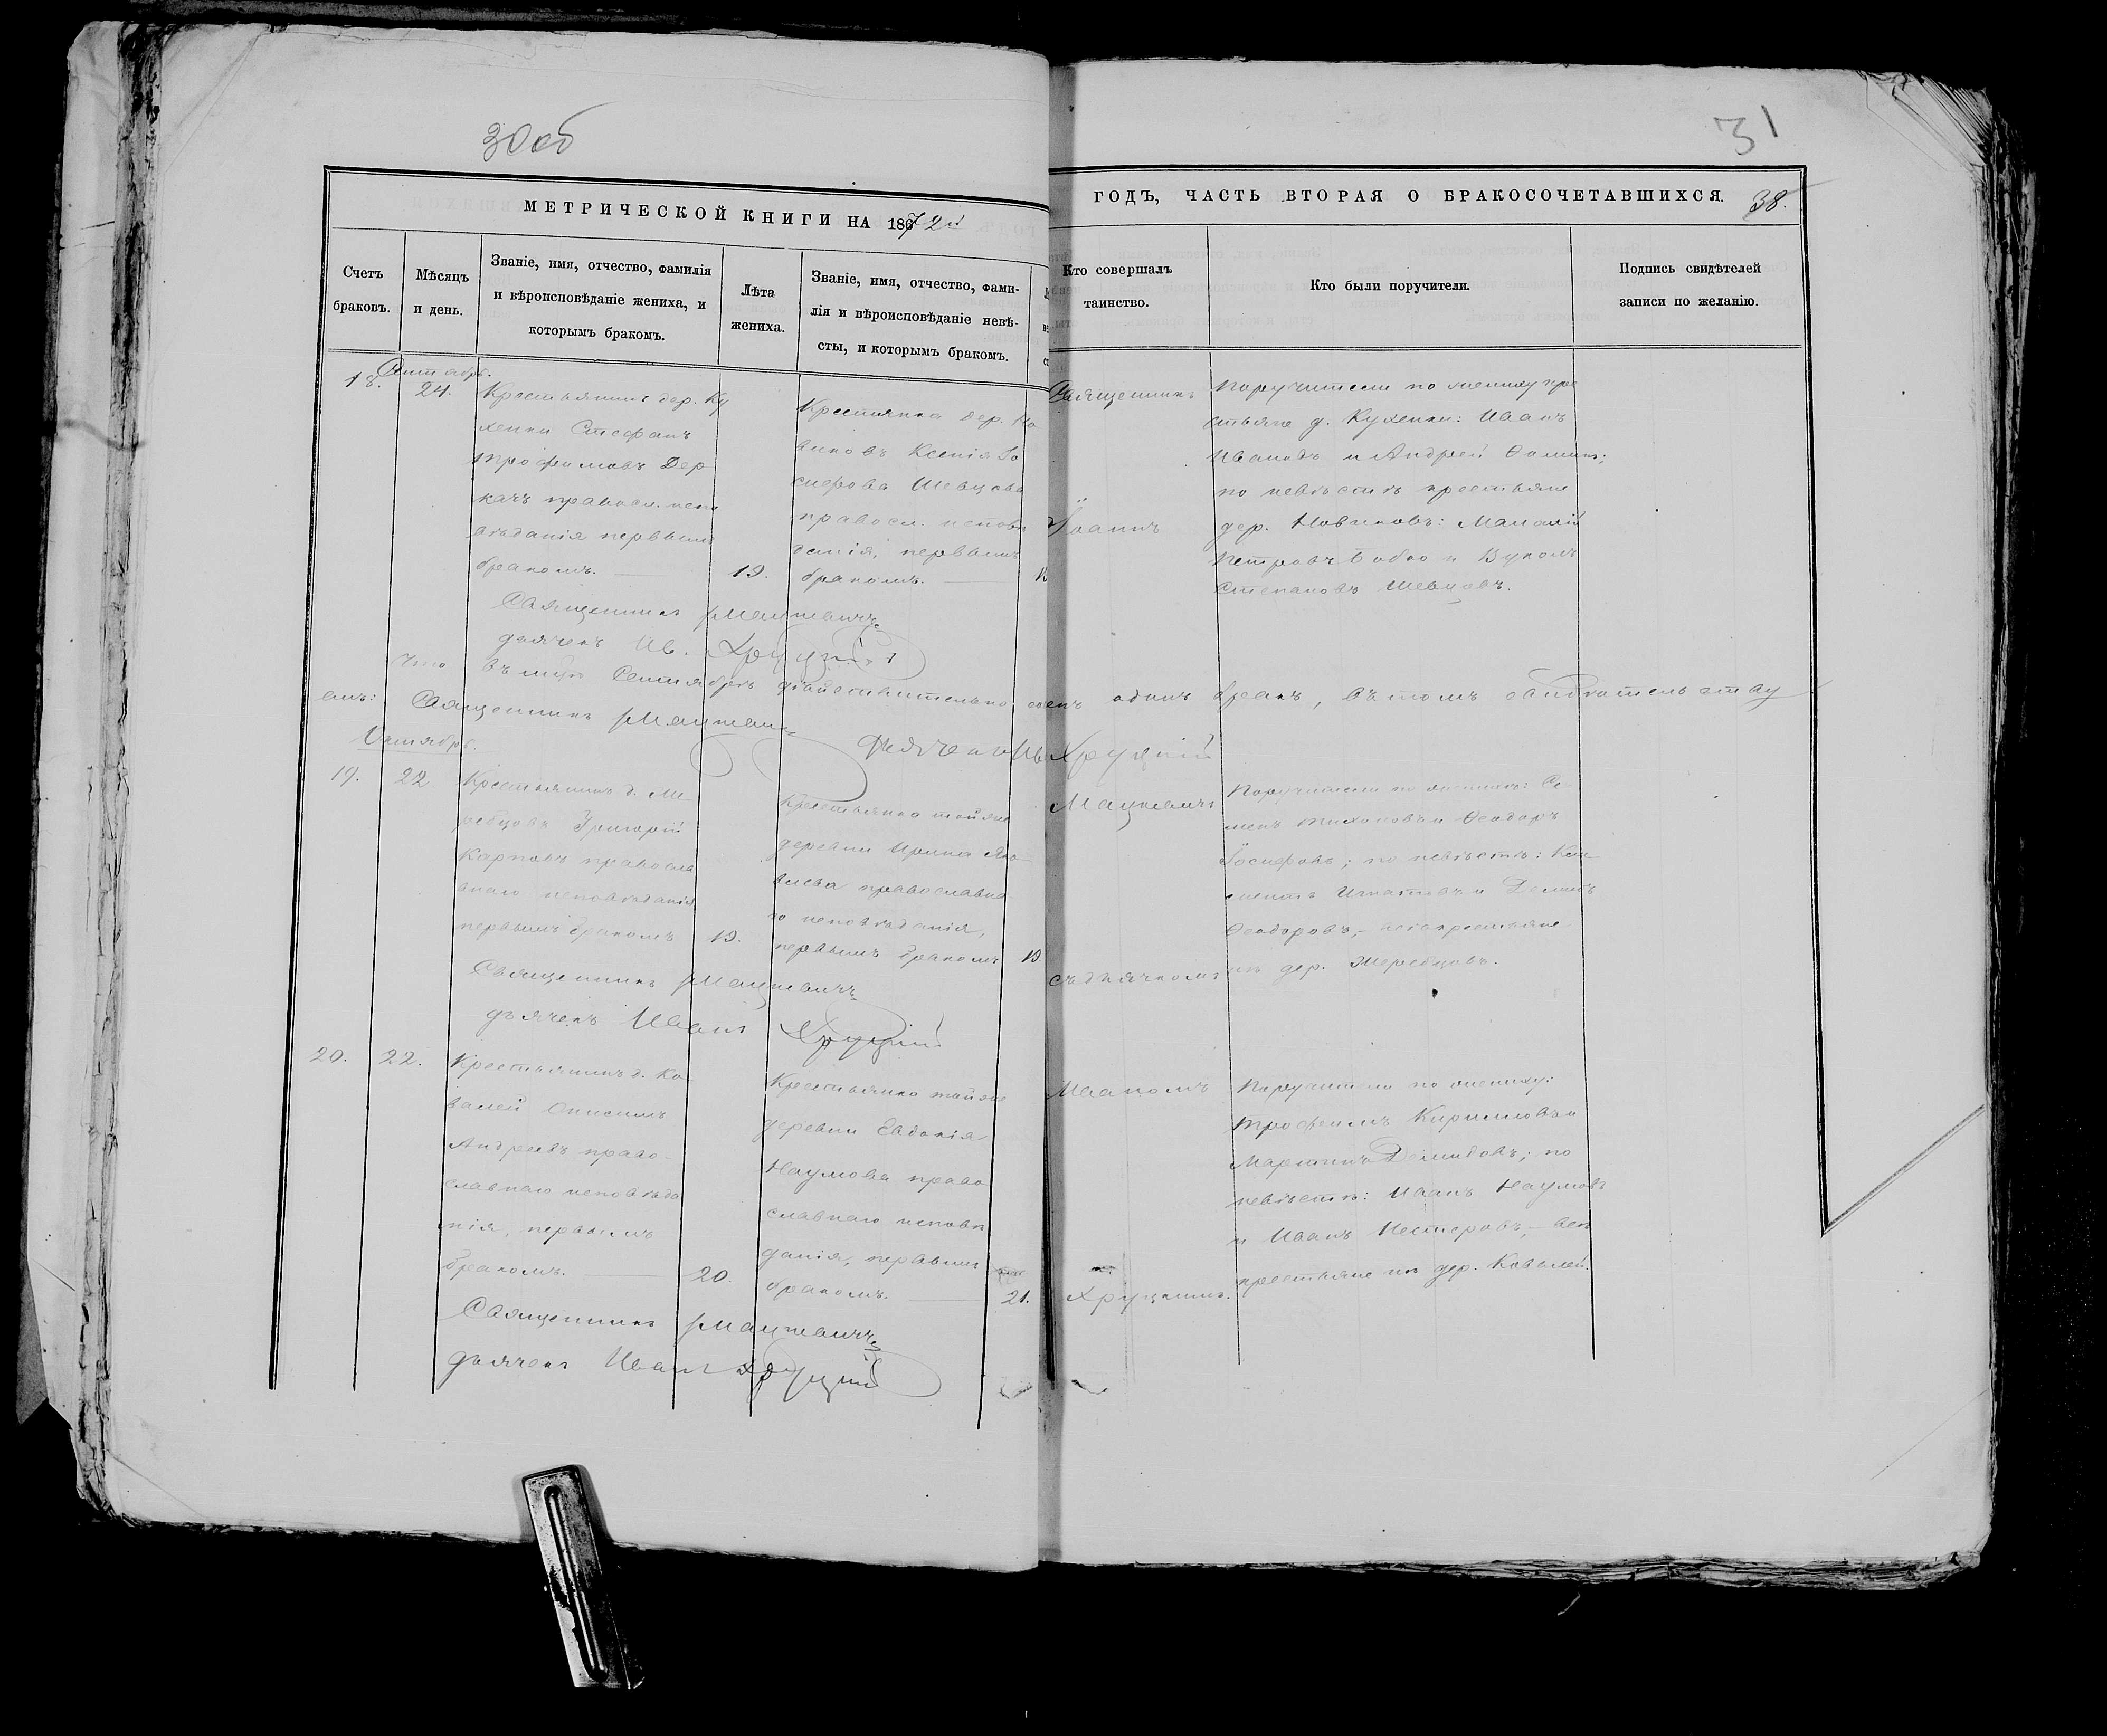 30 об
31
МЕТРИЧЕСКОЙ КНИГИ НА 1872й
ГОДЪ, ЧАСТЬ ВТОРАЯ О БРАКОСОЧЕТАВШИХСЯ. 38.
Счетъ браковъ.
Мѣсяцъ и день.
Званіе, имя, отчество, фамилія
и вѣроисповѣданіе жениха, и
которымъ бракомъ.
Лѣта
жениха.
Званіе, имя, отчество, фами-
лія и вѣроисповѣданіе невѣ-
сты, и которымъ бракомъ.
Кто совершалъ
таинство.
Кто были поручители.
Подпись свидѣтелей
записи по желанію.
18.
24.
Крестьянинъ дер. Ку
хенки Стефанъ
Трофимовъ Дер
качъ правосл. испо
вѣданія первымъ
бракомъ.
19.
Крестьянка дер. Но
виковъ Ксенія Іо
сифова Шевцова
правосл. исповѣ
данія, первымъ
бракомъ.
Священникъ
Іоаннъ
Поручители по жениху кре
стьяне д. Кухенки: Иванъ
Ивановъ и Андрей Ѳоминъ;
по невѣстѣ крестьяне
дер. Новиковъ:
Петровъ Бобко и
Степановъ Шевцовъ.
Священникъ Мацкевичъ
дьячекъ Ив. Хруцкій
Что въ мцѣ Сентябрѣ дѣйствительно одинъ бракъ, въ томъ свидѣтельству
емъ: Священникъ Мацкевичъ
Дьячекъ Ив Хруцкій
Октябрь.
19.
22
Крестьянинъ д. Же
ребцовъ Григорій
Карповъ правосла
внаго исповѣданія
первымъ бракомъ
19.
Крестьянка той же
деревни Ирина
православна
го исповѣданія,
первымъ бракомъ
19
Мацкевичъ
съ дьячкомъ
Поручители по жениху: Се
менъ Тихоновъ и Ѳеодоръ
Іосифовъ; по невѣстѣ: Кли
ментъ Игнатовъ и Демидъ
Ѳеодоровъ, – всѣ крестьяне
изъ дер. Жеребцовъ.
Священникъ Мацкевичъ
дьячекъ Иванъ Хруцкій
20.
22.
Крестьянинъ д. Ко
валей Онисимъ
Андреевъ право-
славнаго исповѣда
нія, первымъ
бракомъ.
20.
Крестьянка той же
деревни Евдокія
Наумова право
славнаго исповѣ
данія, первымъ
бракомъ.
21.
Иваномъ
Хруцкимъ.
Поручители по жениху:
Трофимъ Кирилловъ и
Мартинъ Демидовъ; по
невѣстѣ: Иванъ Наумовъ
и Иванъ Нестеровъ, – всѣ
крестьяне изъ дер. Ковалей.
Священникъ Мацкевичъ
дьячекъ Иванъ Хруцкій